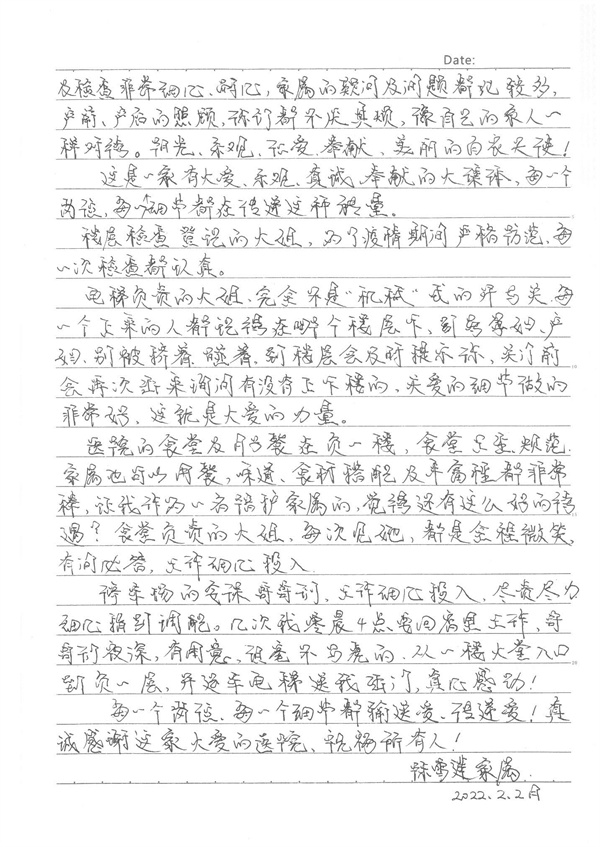 Date:
及检查非常细心、耐心,家属的疑问及问题都比较多,
产前、产后的照顾,你们都不厌其烦,像自己的家人一
样对待。阳光、乐观、仁爱、奉献、美丽的白衣天使!
这是一家有大爱、乐观、真诚、奉献的大集体,每一个
岗位,每一个细节都在传递这种能量。
楼层检查登记的大姐,为了疫情期间严格防范、每
一次检查都认真。
电梯负责的大姐、完全不是"机械"式的开与关,每
一个上来的人都记得在哪个楼层下,到有孕妇、产
妇、别被挤着、碰着、到楼层会及时提示你,关门前
会再次出来询问有没有上下楼的、关爱的细节做的
非常好,这就是大爱的力量。
医院的食堂及月子餐在负一楼,食堂卫生、规范、
家属也可以用餐,味道、食材搭配及丰富程都非常
棒,让我作为一名陪护家属的,觉得还有这么好的待
遇?食堂负责的大姐,每次见她,都是全程微笑、
有问必答,工作细心投入.
停车场的安保哥哥们,工作细心投入、尽责尽力
细心指引调配。几次我凌晨4点要回宿里工作,哥
哥们夜深,有困意,但毫不马虎的.从一楼大堂入口
到负一层,开送车电梯送我出门,真心感动!
每一个岗位、每一个细节都输送爱、传递爱!真
诚感谢这家大爱的医院、祝福所有人!
雪莲家属
2022.2.2月